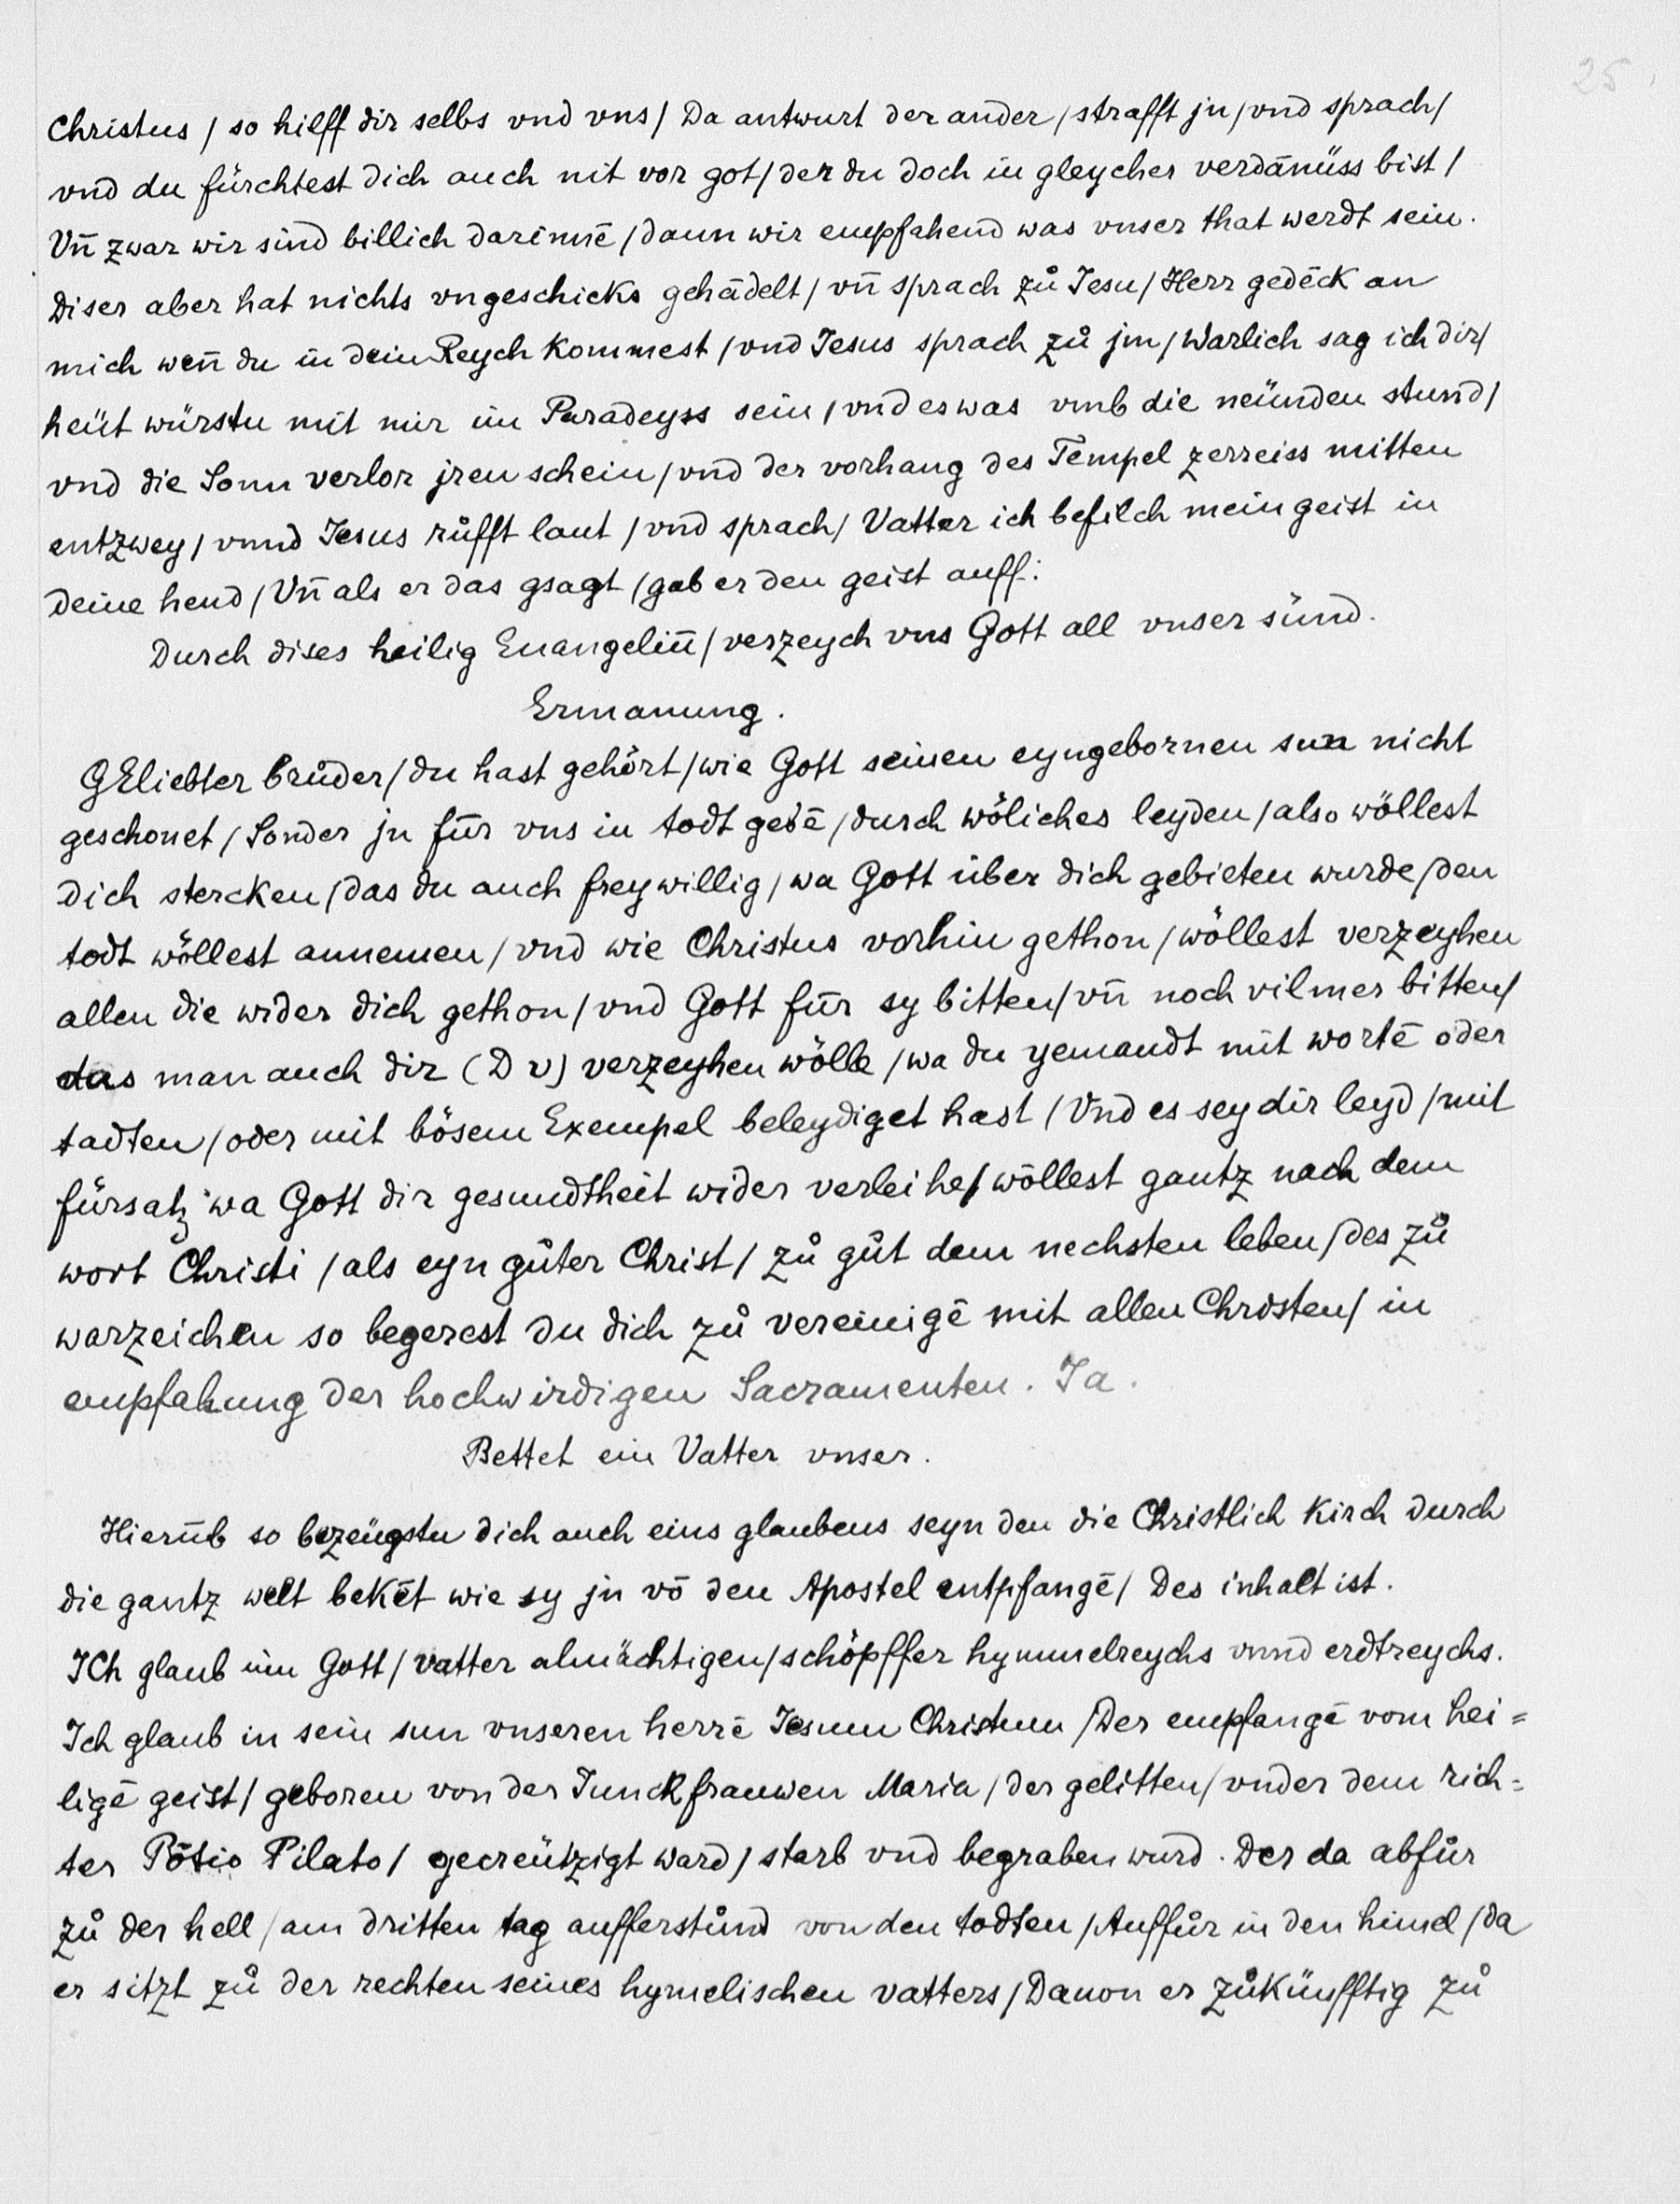 25.
Christus / so hilff dir selbs vnd vns / Da antwurt der ander / strafft jn / vnd sprach /
vnd du fürchtest dich auch nit vor got / der du doch in gleycher verdānüss bist /
Vn̄ zwar wir sind billich darinnē / dann wir empfahend was vnser that werdt sein.
Diser aber hat nichts vngeschicks gehādelt / vn̄ sprach zů Jesu / Herr gedēck an
mich wen̄ du in dein Reych kommest / vnd Jesus sprach zů jm / Warlich sag ich dir /
heüt würstu mit mir im Paradeyss sein / vnd es was vmb die neünden stund /
vnd die Sonn verlor jren schein / vnd der vorhang des Tempel zerreiss mitten
entzwey / vnnd Jesus růfft laut / vnd sprach / Vatter ich befilch mein geist in
deine hend / Vn̄ als er das gsagt / gab er den geist auff:
Durch dises heilig Euangeliū / verzeych vns Gott all vnser sünd.
Ermanung.
GEliebter brůder / du hast gehört / wie Gott seinen eyngebornen sun nicht
geschonet / Sonder jn für vns in todt gebē / durch wöliches leyden / also wöllest
dich stercken / das du auch freywillig / wa Gott über dich gebieten wurde / den
todt wöllest annemen / vnd wie Christus vorhin gethon / wöllest verzeyhen
allen die wider dich gethon / vnd Gott für sy bitten / vn̄ noch vilmer bitten /
das man auch dir (D v) verzeyhen wölle / wa du yemandt mit wortē oder
tadten / oder mit bösem Exempel beleydiget hast / Vnd es sey dir leyd / mit
fürsatz wa Gott dir gesundtheit wider verleihe / wöllest gantz nach dem
wort Christi / als eyn gůter Christ / zů gůt dem nechsten leben / des zů
warzeichen so begerest du dich zů vereinigē mit allen Christen / in
empfahung der hochwirdigen Sacramenten. Ja.
Bettet ein Vatter vnser.
Hierūb so bezeügstu dich auch eins glaubens seyn den die Christlich Kirch durch
die gantz welt bekēt wie sy jn vō den Apostel entpfangē / Des inhalt ist.
ICh glaub inn Gott / vatter almächtigen / schöpffer hymmelreychs vnnd erdtreychs.
Ich glaub in sein sun vnseren herrē Jesum Christum / Der empfangē vom hei=
ligē geist / geboren von der Junckfrauwen Maria / der gelitten / vnder dem rich=
ter Pōtio Pilato / gecreützigt ward / starb vnd begraben wurd. Der da abfůr
zů der hell / am dritten tag aufferstůnd von den todten / Auffůr in den himel / da
er sitzt zů der rechten seines hymelischen vatters / Dauon er zůkünfftig zů